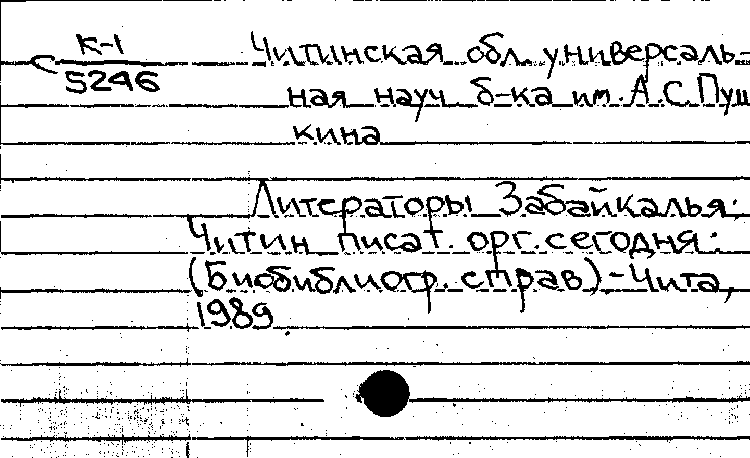 С К-1
5246
Читинская обл. универсаль-
ная науч. б-ка им. А.С.Пуш
кина
Литераторы Забайкалья:
Читин писат. орг. сегодня:
(Биобиблиогр. справ) - Чита,
1989